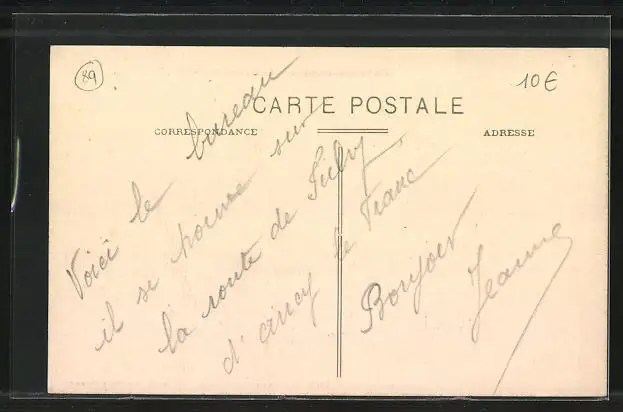 89
10€
CARTE POSTALE
CORRESPONDANCE
ADRESSE
Voici le bureau
il se trouve sur
la route de Fulvy
d'ancy le Franc
Bonjour
Jeanne